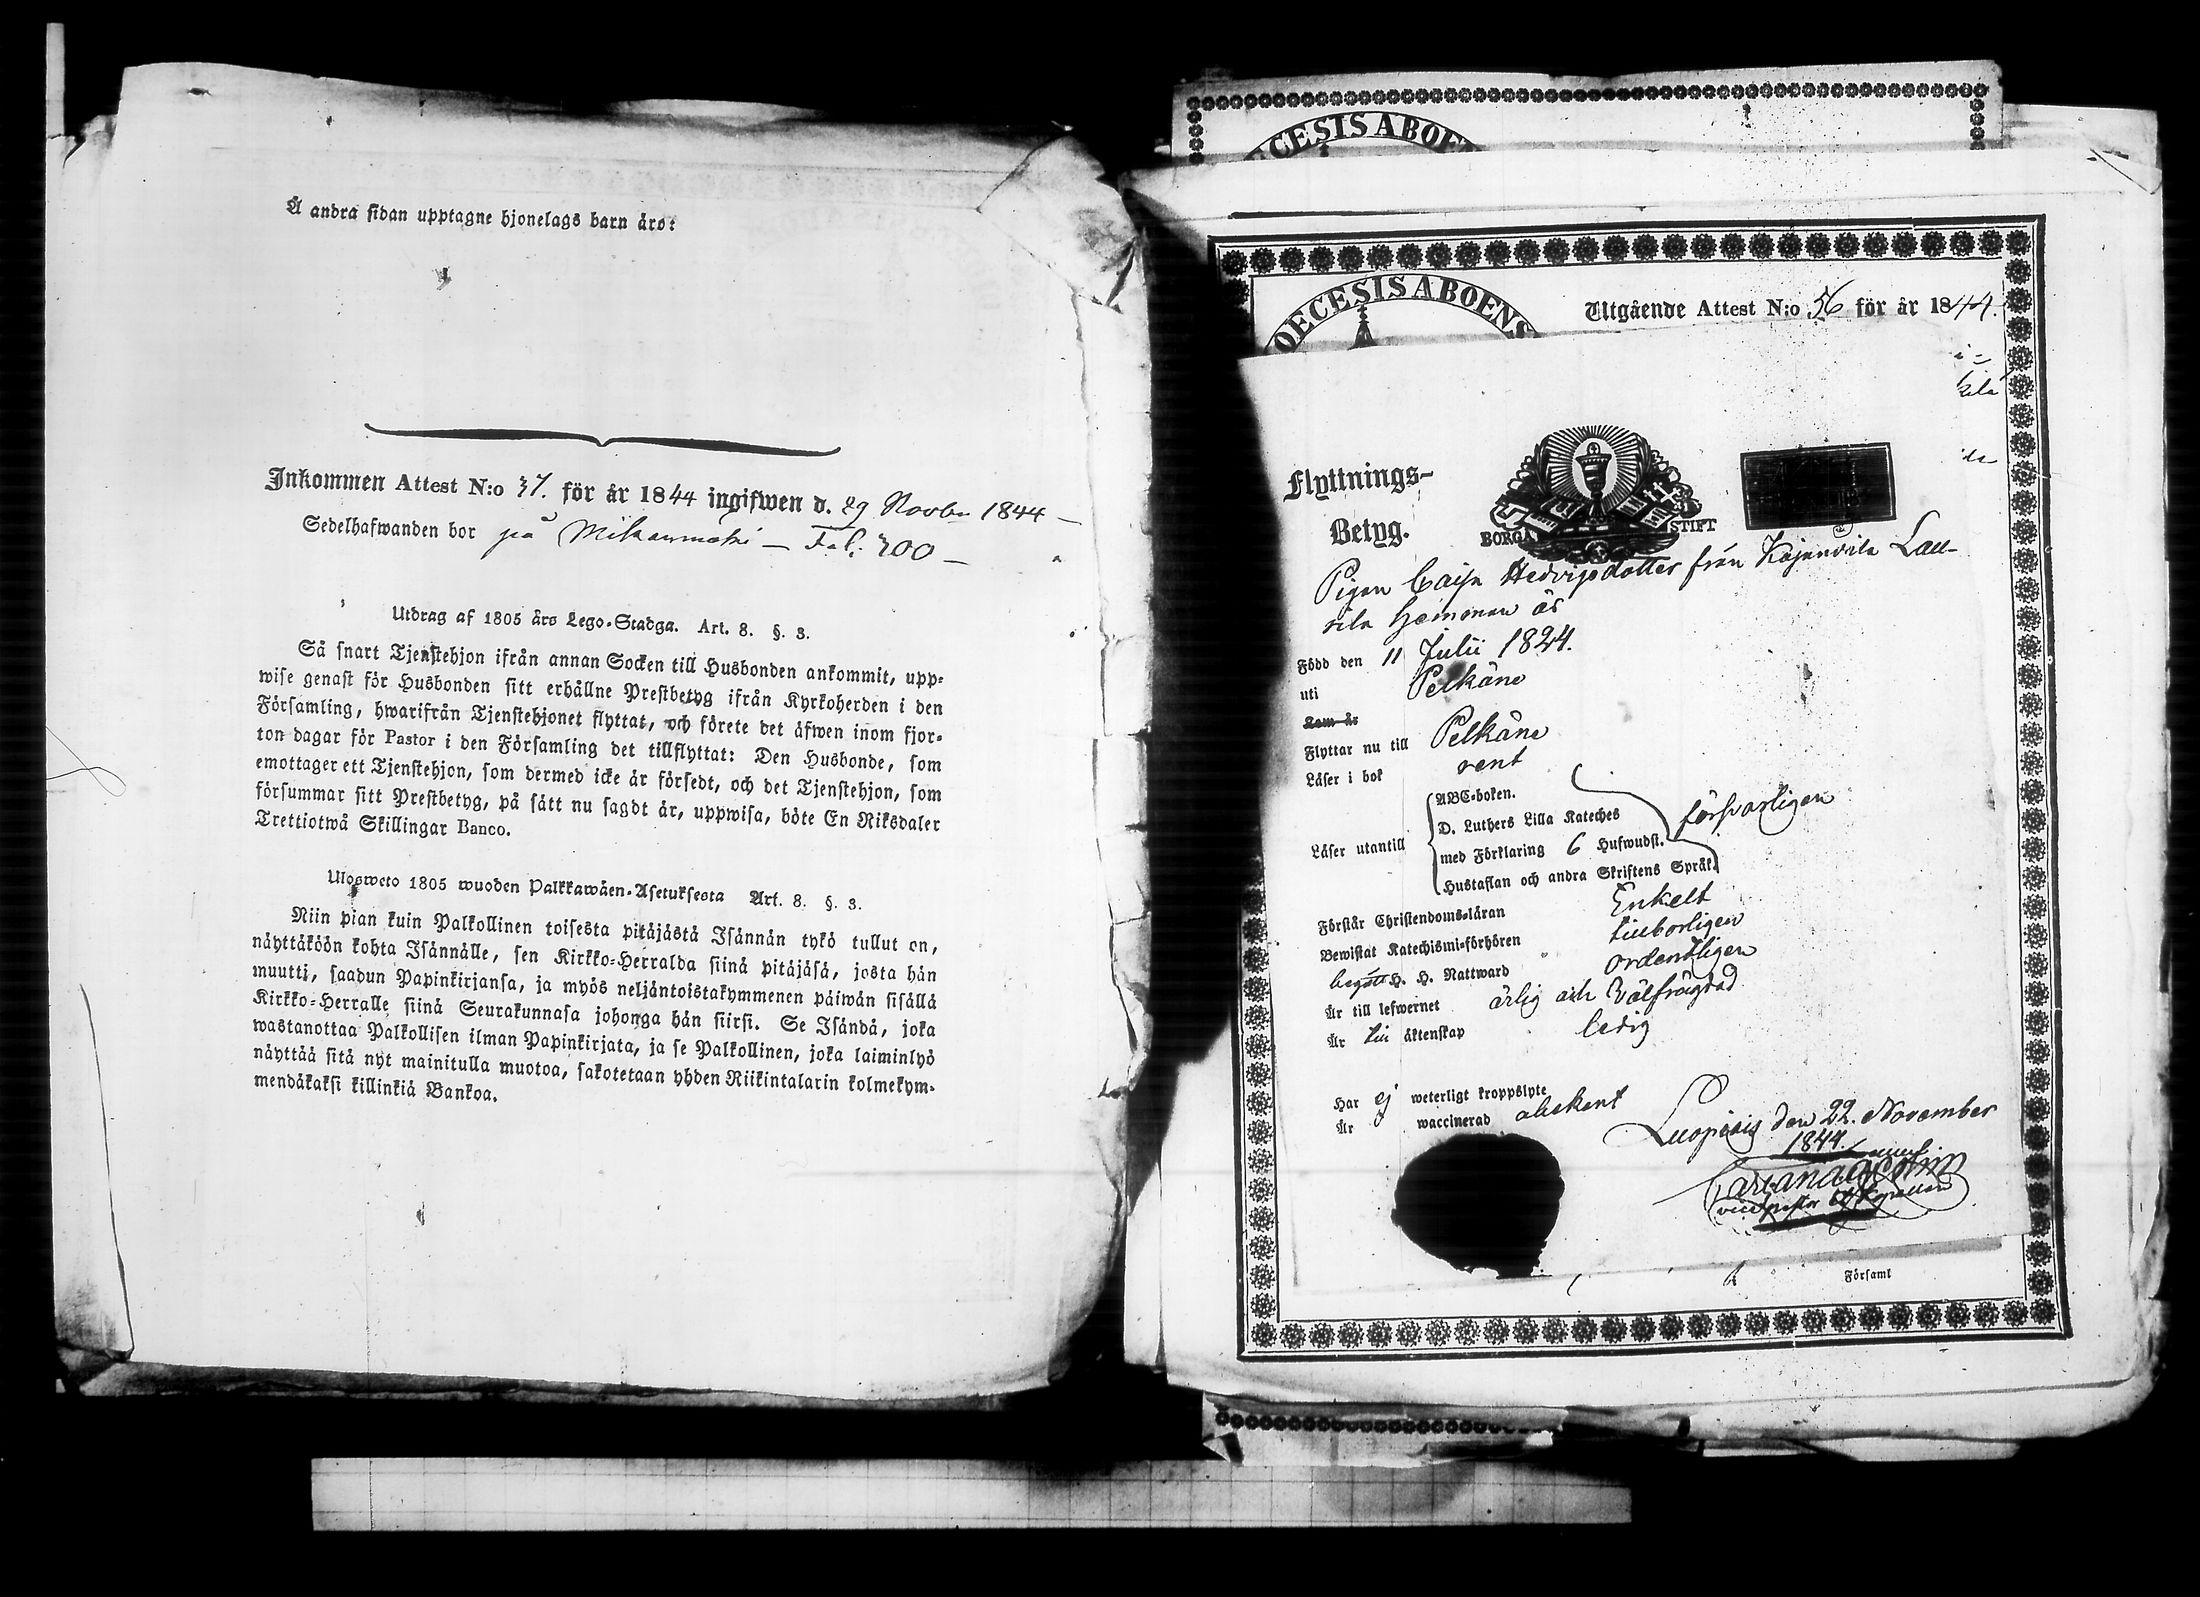 Å andra sidan upptagne hjonelags barn äro:
Inkommen Attest N:o 37. för år 1844 ingifwen d. 29 Novbr 1844 —
Sedelhafwanden bor på — Fol: 200 —
Utdrag af 1805 års Lego-Stadga. Art. 8. §. 3.
Så snart Tjenstehjon ifrån annan Socken till Husbonden ankommit, upp-
wise genast för Husbonden sitt erhållne Prestbetyg ifrån Kyrkoherden i den
Församling, hwarifrån Tjenstehjonet flyttat, och förete det äfwen inom fjor-
ton dagar för Pastor i den Församling det tillflyttat: Den Husbonde, som
emottager ett Tjenstehjon, som dermed icke är försedt, och det Tjenstehjon, som
försummar sitt Prestbetyg, på sätt nu sagdt är, uppwisa, böte En Riksdaler
Trettiotwå Skillingar Banco.
Ulosweto 1805 wuoden Palkkawäen-Asetuksesta Art. 8. §. 3.
Niin pian kuin Palkollinen toisesta pitäjästä Isännän tykö tullut on,
näyttäköön kohta Isännälle, sen Kirkko-Herralda siinä pitäjäsä, josta hän
muutti, saadun Papinkirjansa, ja myös neljäntoistakymmenen päiwän sisällä
Kirkko-Herralle siinä Seurakunnasa johonga hän siirsi. Se Isändä, joka
wastanottaa Palkollisen ilman Papinkirjata, ja se Palkollinen, joka laiminlyö
näyttää sitä nyt mainitulla muotoa, sakotetaan yhden Riikintalarin kolmekym-
mendäkaksi killinkiä Bankoa.
OECESIS ABOE
OECESIS ABOENS
Utgående Attest N:o 56 för år 1844.
Flyttnings-
Betyg.
BORGÅ STIFT
Pigan Caisa Hedvigsdotter från Kajanvila Lau-
rila hemman är
Född den 11 Julii 1824.
uti Pelkäne
Kom år
Flyttar nu till Pelkäne
Läser i bok rent
Läser utantill
ABC-boken.
D. Luthers Lilla Kateches
med Förklaring 6 Hufwudst.
Hustaflan och andra Skriftens Språk.
försvarligen
Förstår Christendoms-läran Enkelt
Bewistat Katechismi-förhören tillborligen
begått H. H. Nattward ordentligen
Är till lefwernet ärlig och Välfrägdad
Är till äktenskap ledig
Har ej weterligt kroppslyte
Är waccinerad obekant
Luopiois den 22. November
1844.
Församl